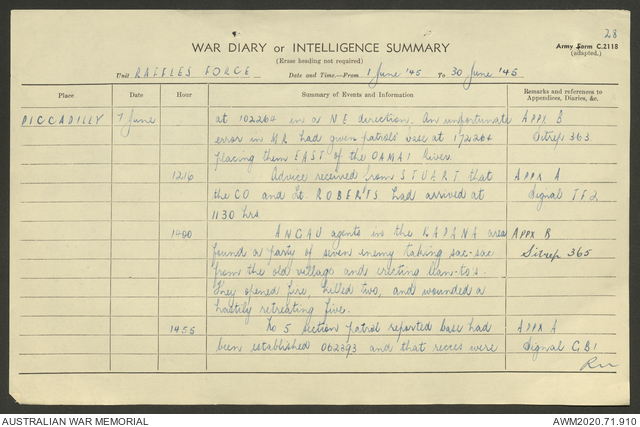 28
WAR DIARY or INTELLIGENCE SUMMARY
Army Form C.2118
(adapted.)
(Erase heading not required)
Unit RAFFLES FORCE Date and Time.—From 1 June '45 To 30 June '45
Place Date Hour Summary of Events and Information Remarks and references to Appendices, Diaries, &c.
PICCADILLY 7 June at 102264 in a NE direction. An unfortunate APPX B
error in MR had given patrols base at 172264 Sitrep 363.
placing them EAST of the OAMAI River.
1216 Advice received from STUART that APPX A
the CO and Lt. ROBERTS had arrived at Signal TF2
1130 hrs.
1400 ANGAU agents in the RAPANA area APPX B
found a party of seven enemy taking sac-sac Sitrep 365
from the old village and erecting lean-to's.
They opened fire, killed two, and wounded a
hastily retreating five.
1455 No 5 section patrol reported base had APPX A
been established 062393 and that recces were Signal GB1
AUSTRALIAN WAR MEMORIAL AWM2020.71.910